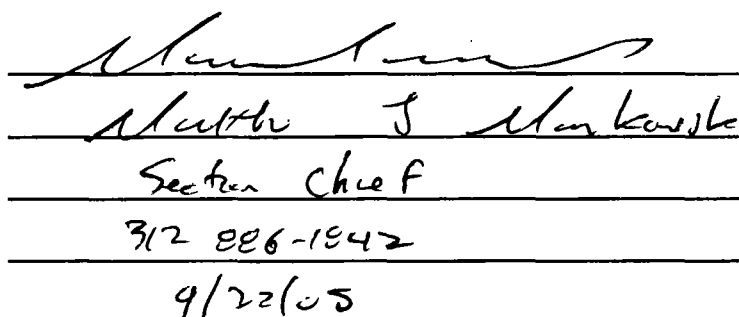 J Mankowsk
Section Chief
312 886-1842
9/22/05